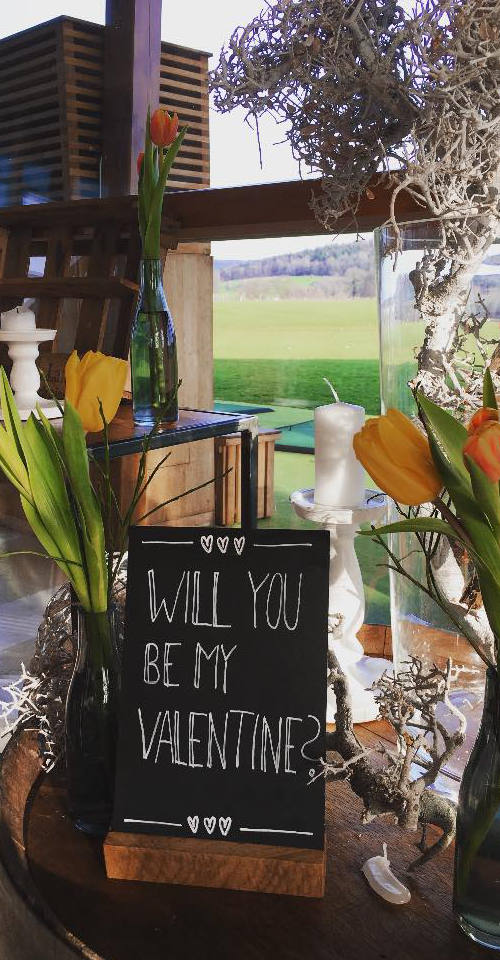 WILL YOU
BE MY
VALENTINE?